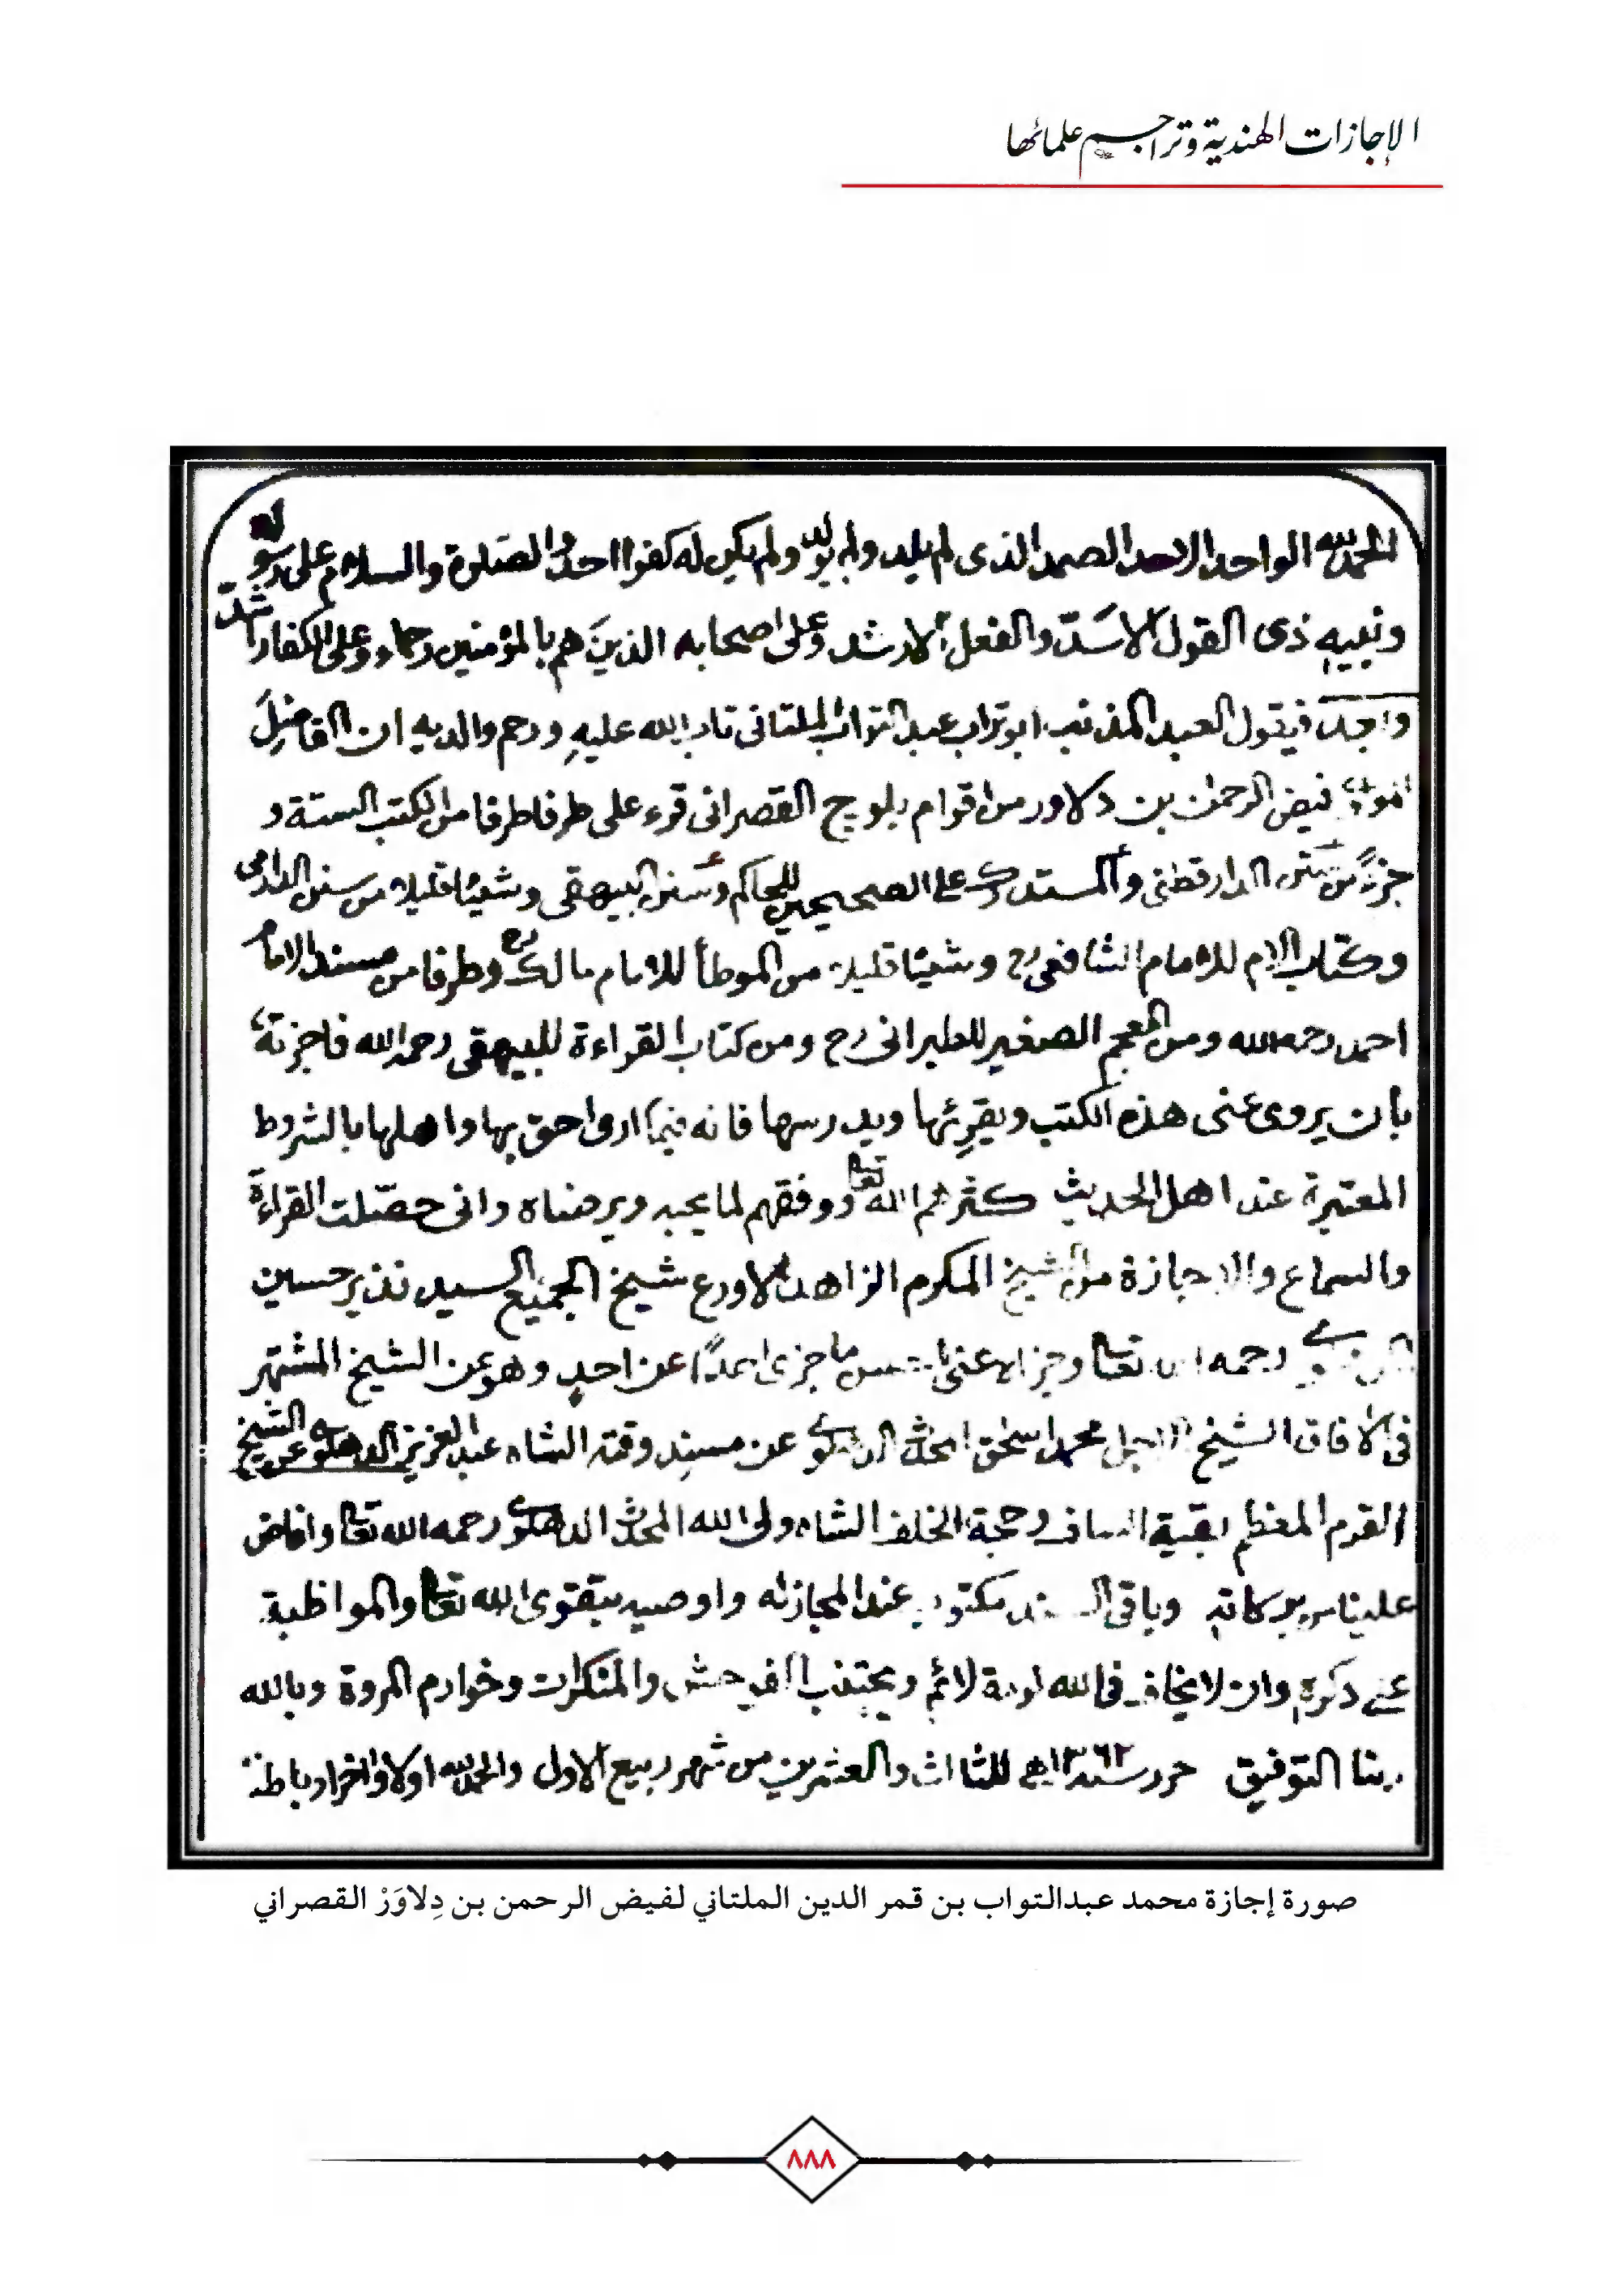 الإجازات الهندية وتراجم علمائها
الحمد لله الواحد الاحد الصمد الذى لم يلد ولم يولد ولم يكن له كفوا احد والصلوة والسلام على رسوله
ونبيه ذى القول الاسدّ والفعل الارشد وعلى اصحابه الذين هم بالمؤمنين رحماء وعلى الكفار اشدّ
فيقول العبد المذنب ابو تراب عبد التواب الملتانى تاب الله عليه ورحم والديه ان الفاضل
فيض الرحمن بن دلاور من اقوام بلوچ القصرانى قرء على طرفا طرفا من الكتب الستة و
جزءً من سنن الدارقطنى والمستدرك على الصحيحين للحاكم وسنن البيهقى وشيئا قليلا من سنن الدارمى
وكتاب الام للامام الشافعى رح وشيئا قليلا من الموطأ للامام مالك رح وطرفا من مسند الامام
احمد رحمه الله ومن المعجم الصغير للطبرانى رح ومن كتاب القراءة للبيهقى رحمه الله فاجزته
بان يروى عنى هذه الكتب ويقرئها ويدرسها فانه فيما ارى احق بها واهلها بالشروط
المعتبرة عند اهل الحديث كثرهم الله تعا ووفقهم لما يحبه ويرضاه وانى حصّلت القراءة
والسماع والاجازة من الشيخ المكرم الزاهد الاورع شيخ الجميع السيد نذير حسين
رحمه الله تعا وجزاه عنى احسن ما جزى احدًا عن احدٍ وهو عن الشيخ المشتهر
فى الافاق الشيخ الاجل محمد اسحٰق المحدث الدهلوى عن مسند وقته الشاه عبد العزيز الدهلوى عن الشيخ
القرم المعظم بقية السلف وحجة الخلف الشاه ولى الله المحدث الدهلوى رحمه الله تعا وافاض
علينا من بركاته وباقى السند مكتوب عند المجاز له واوصيه بتقوى الله تعا والمواظبة
على ذكره وان لا يخاف فى الله لومة لائم ويجتنب الفواحش والمنكرات وخوارم المروة وبالله
ربنا التوفيق حرر سنه ١٣٦٢ھ للثالث والعشرين من شهر ربيع الاول والحمد لله اولا واخرا وباطنا
صورة إجازة محمد عبدالتواب بن قمر الدين الملتاني لفيض الرحمن بن دِلاوَرْ القصراني
٨٨٨